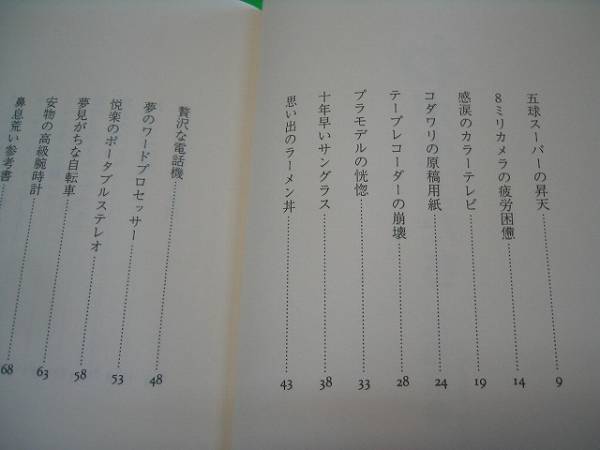 五球スーパーの昇天……………………9
8ミリカメラの疲労困憊……………………14
感涙のカラーテレビ……………………19
コダワリの原稿用紙……………………24
テープレコーダーの崩壊……………………28
プラモデルの恍惚……………………33
十年早いサングラス……………………38
思い出のラーメン丼……………………43
贅沢な電話機……………………48
夢のワードプロセッサー……………………53
悦楽のポータブルステレオ……………………58
夢見がちな自転車……………………63
安物の高級腕時計……………………68
鼻息荒い参考書